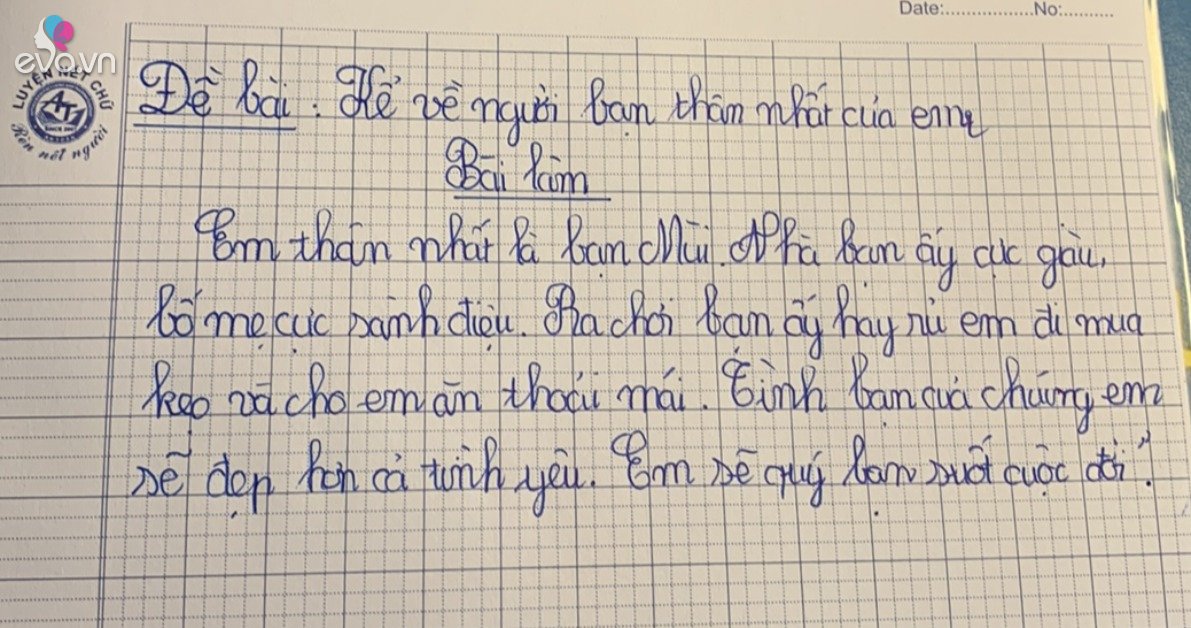 Date:................No:..........
eva.vn
LUYỆN NÉT CHỮ
Rèn nết người
Đề bài: Kể về người bạn thân nhất của em
Bài làm
Em thân nhất là bạn Mùi. Nhà bạn ấy cực giàu,
bố mẹ cực sành điệu. Ra chơi bạn ấy hay rủ em đi mua
kẹo và cho em ăn thoải mái. Tình bạn của chúng em
sẽ đẹp hơn cả tình yêu. Em sẽ quý bạn suốt cuộc đời"